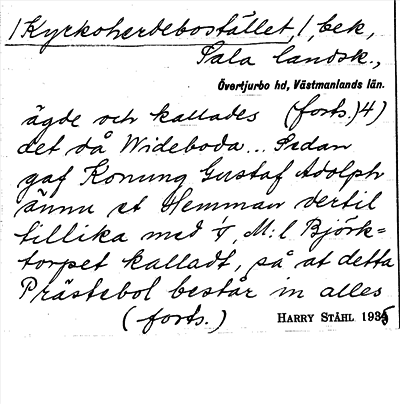 /Kyrkoherdebostället,/, bek,
Sala landsk.,
Övertjurbo hd, Västmanlands län.
ägde och kallades (forts.)4)
det då Wideboda... Sedan
gaf Konung Gustaf Adolph
ännu et Hemman dertil
tillika med M:l Björk=
torpet kalladt, så at detta
Prästebol består in alles
(forts.)
HARRY STÅHL 1935